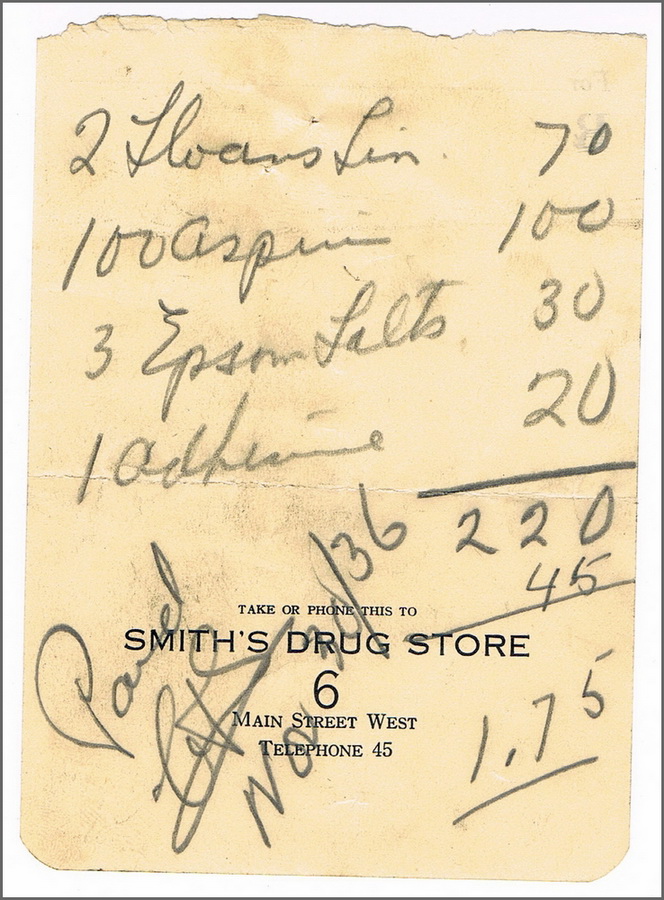 2 Sloans Lin. 70
100 Aspirin 100
3 Epsom Salts 30
1 Adhesive 20
220
45
TAKE OR PHONE THIS TO
SMITH'S DRUG STORE
6
MAIN STREET WEST
TELEPHONE 45
1.75
Paid
Nov 30/36